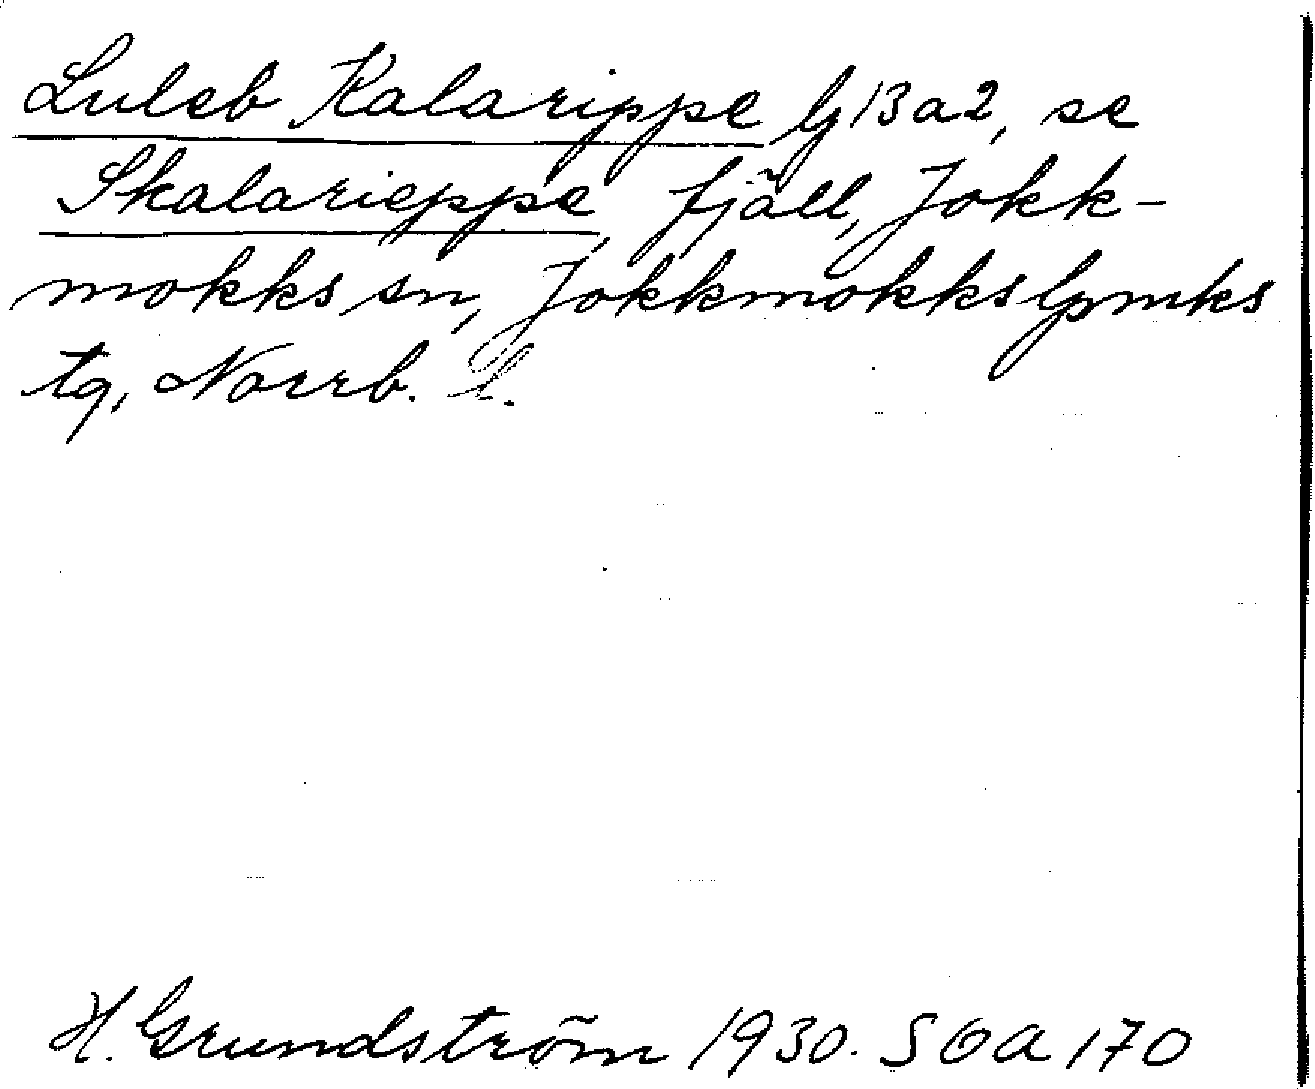 Luleb Kalarippe G13a2, se
Skalarieppe, fjäll, Jokk-
mokks sn, Jokkmokks lpmks
tg, Norrb. l.
H. Grundström 1930. SOA 170